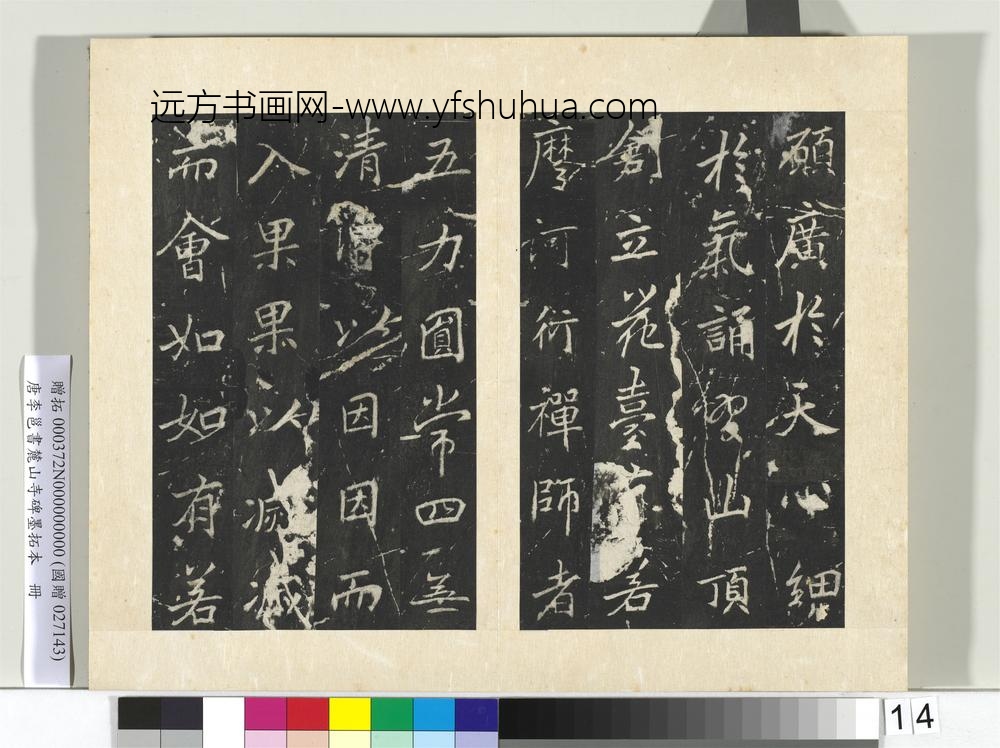 願廣於天心細
於氣誦習山頂
創立花臺有若
摩訶衍禪師者
五力圓常四無
清以因因而
入果果以滅滅
而會如如有若
远方书画网-www.yfshuhua.com
贈拓 000372N000000000 (國贈 027143)
唐李邕書麓山寺碑墨拓本 冊
14